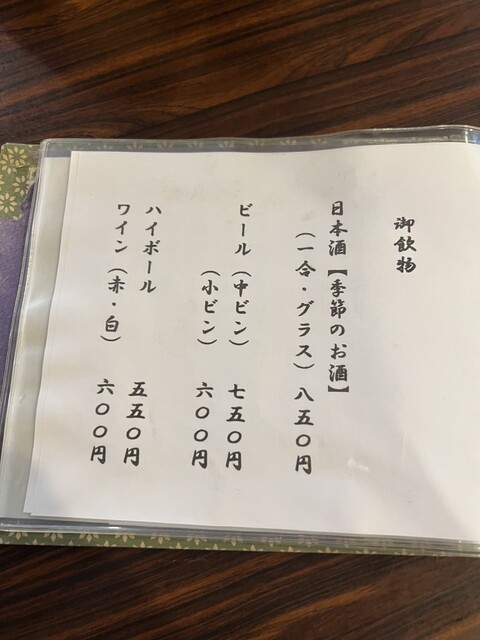 御飲物
日本酒【季節のお酒】
（一合・グラス）八五〇円
ビール（中ビン）　七五〇円
（小ビン）　六〇〇円
ハイボール　五五〇円
ワイン（赤・白）　六〇〇円